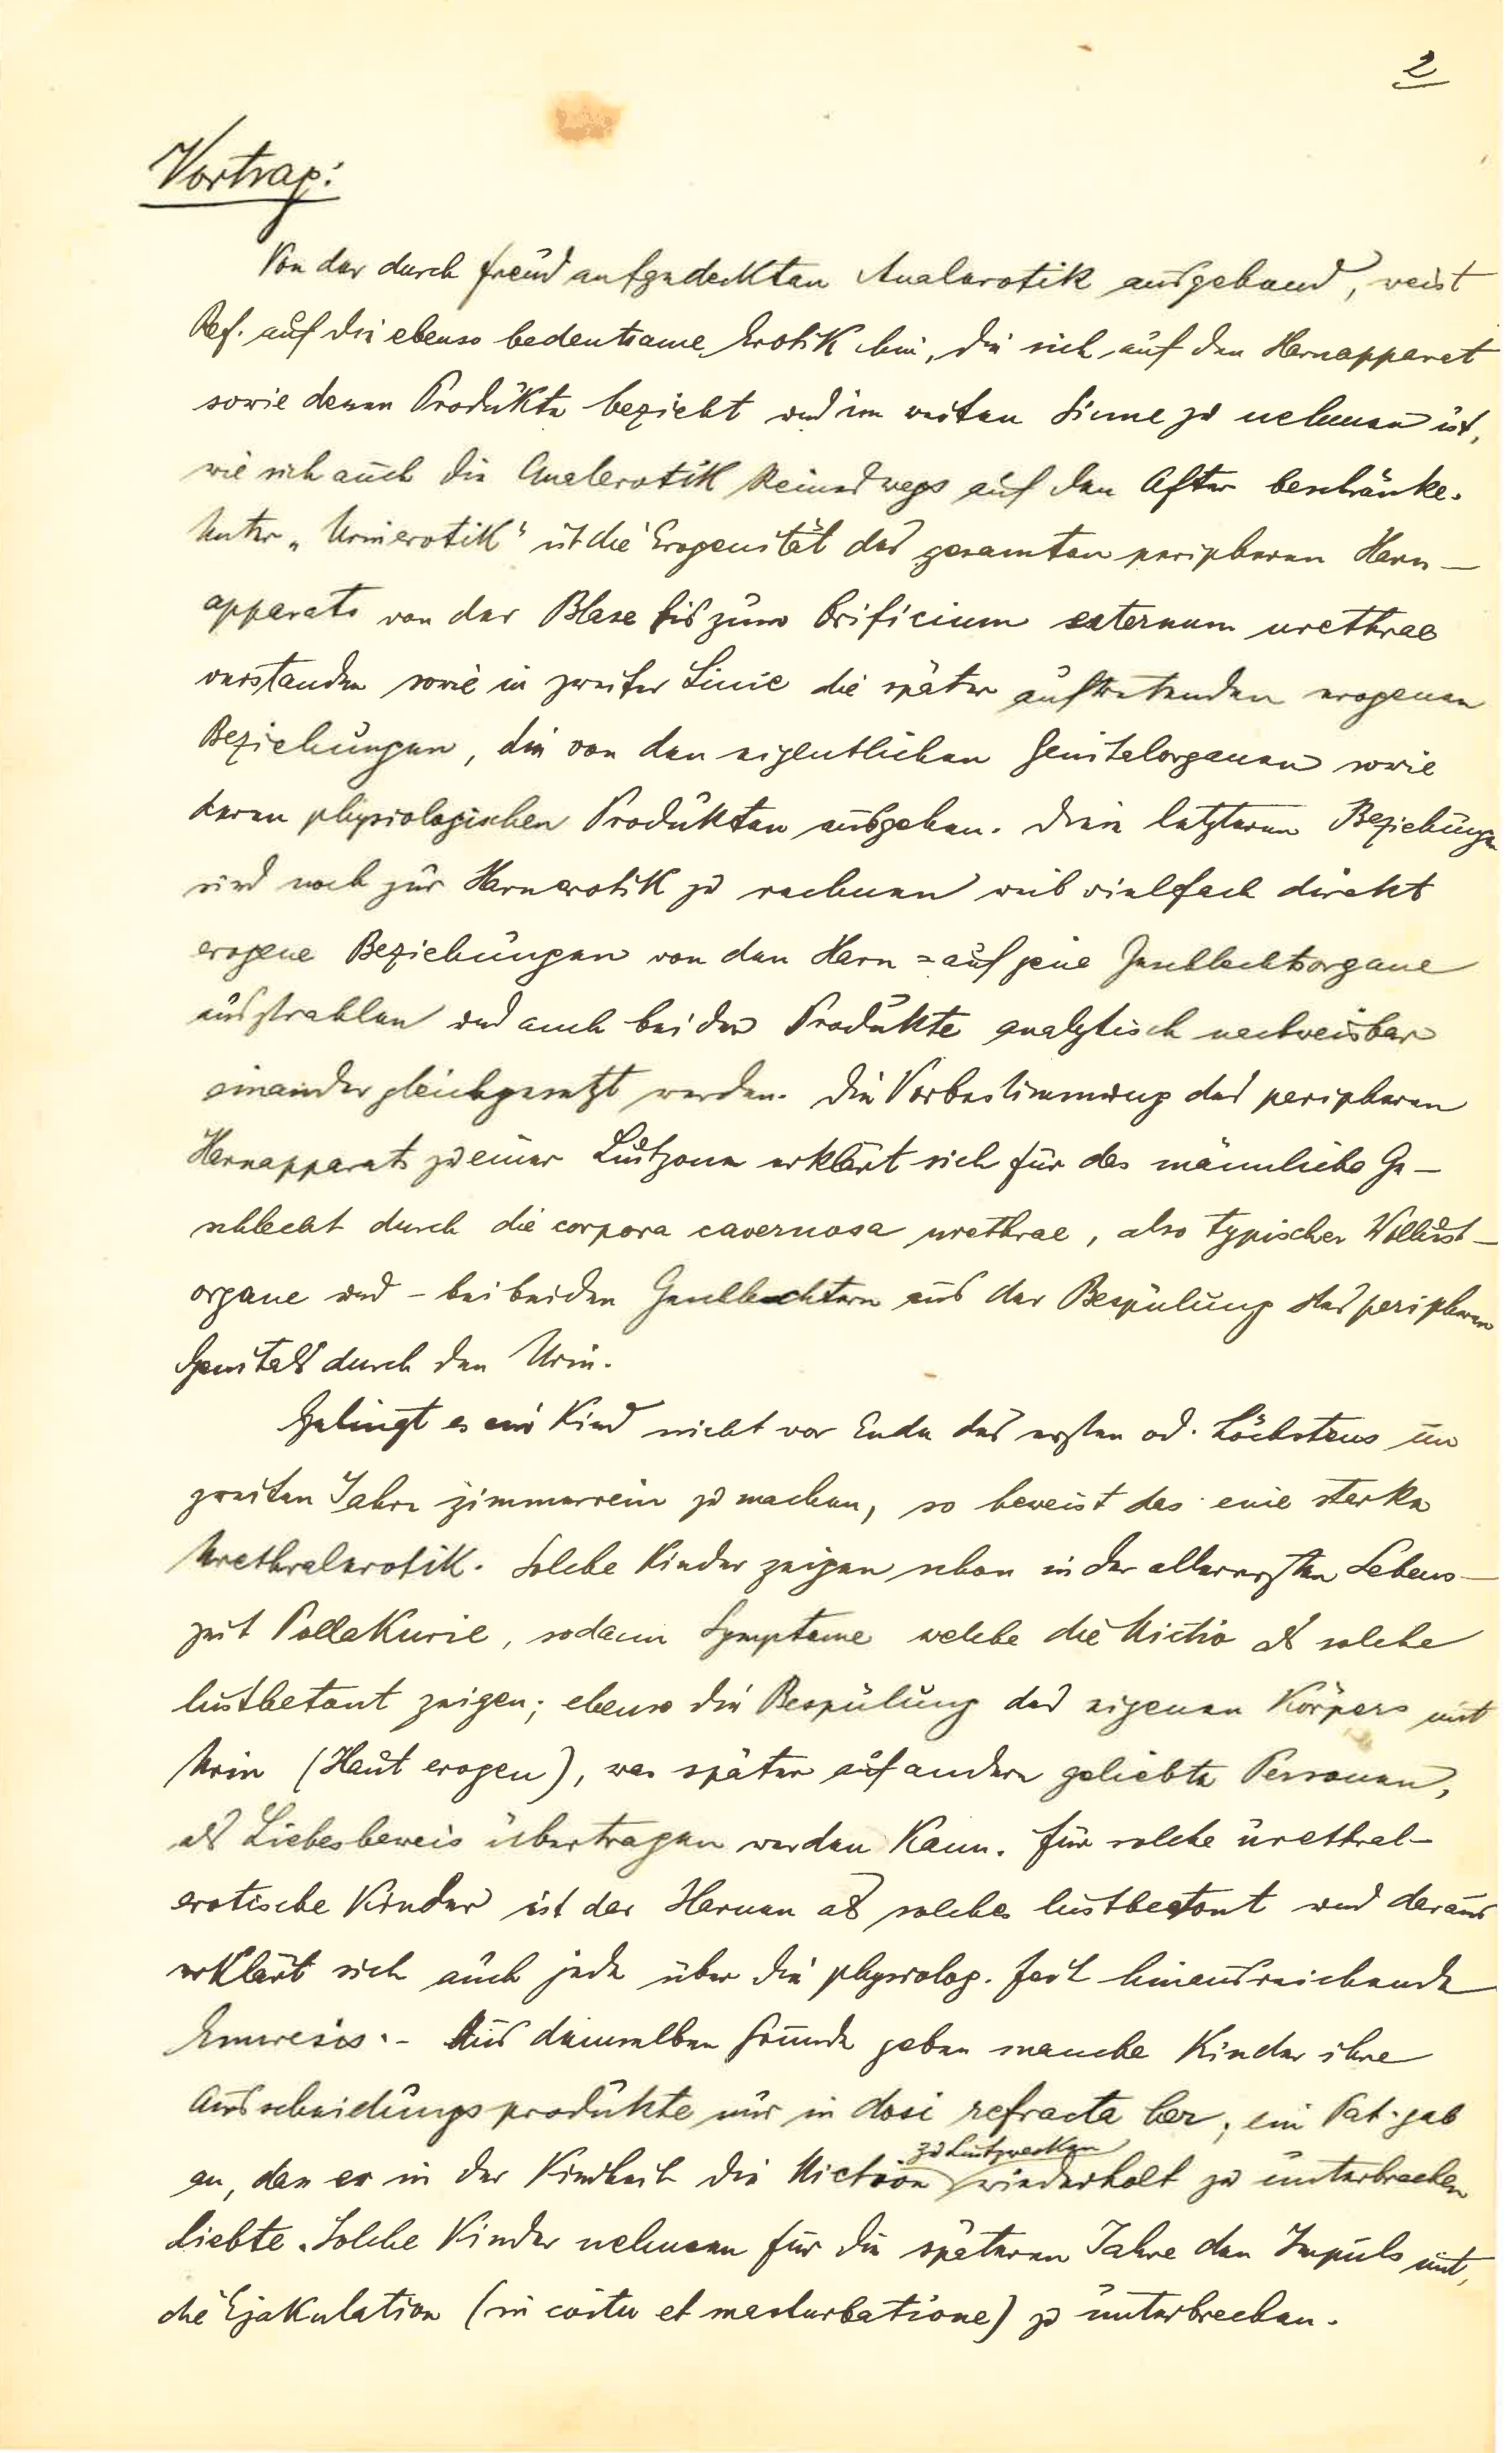 2
Vortrag:
Von der durch Freud aufgedeckten Analerotik ausgehend, weist
Ref. auf die ebenso bedeutsame Erotik hin, die sich auf den Harnapparat
sowie dessen Produkte bezieht und im weiten Sinne zu nehmen ist,
wie sich auch die Analerotik keineswegs auf den After beschränke.
Unter „Urinerotik" ist die Erogenität des gesamten peripheren Harn-
apparats von der Blase bis zum Orificium externum urethrae
verstanden sowie in zweiter Linie die später auftretenden erogenen
Beziehungen, die von den eigentlichen Genitalorganen sowie
deren physiologischen Produkten ausgehen. Diese letzteren Beziehungen
sind noch zur Harnerotik zu rechnen weil vielfach direkt
erogene Beziehungen von den Harn= auf jene Geschlechtsorgane
ausstrahlen und auch beider Produkte analytisch nachweisbar
einander gleichgesetzt werden. Die Vorbestimmung des peripheren
Harnapparats zu einer Lustzone erklärt sich für das männliche Ge-
schlecht durch die corpora cavernosa urethrae, also typischer Wollust-
organe und - bei beiden Geschlechtern aus der Bespülung des peripheren
Genitals durch den Urin.
Gelingt es ein Kind nicht vor Ende des ersten od. höchstens im
zweiten Jahre zimmerrein zu machen, so beweist das eine starke
Urethralerotik. Solche Kinder zeigen schon in der allerersten Lebens-
zeit Pollakurie, sodann Symptome welche die Mictio als solche
lustbetont zeigen; ebenso die Bespülung des eigenen Körpers mit
Urin (Haut erogen), was später auf andere geliebte Personen,
als Liebesbeweis übertragen werden kann. Für solche urethral-
erotische Kinder ist das Harnen als solches lustbetont und daraus
erklärt sich auch jede über die physiolog. Zeit hinausreichende
Enuresis. - Aus demselben Grunde geben manche Kinder ihre
Ausscheidungsprodukte nur in dosi refracta her; ein Pat. gab
zu Lustzwecken
an, dass er in der Kindheit die Miction wiederholt zu unterbrechen
liebte. Solche Kinder nehmen für die späteren Jahre den Impuls mit,
die Ejakulation (in coitu et masturbatione) zu unterbrechen.